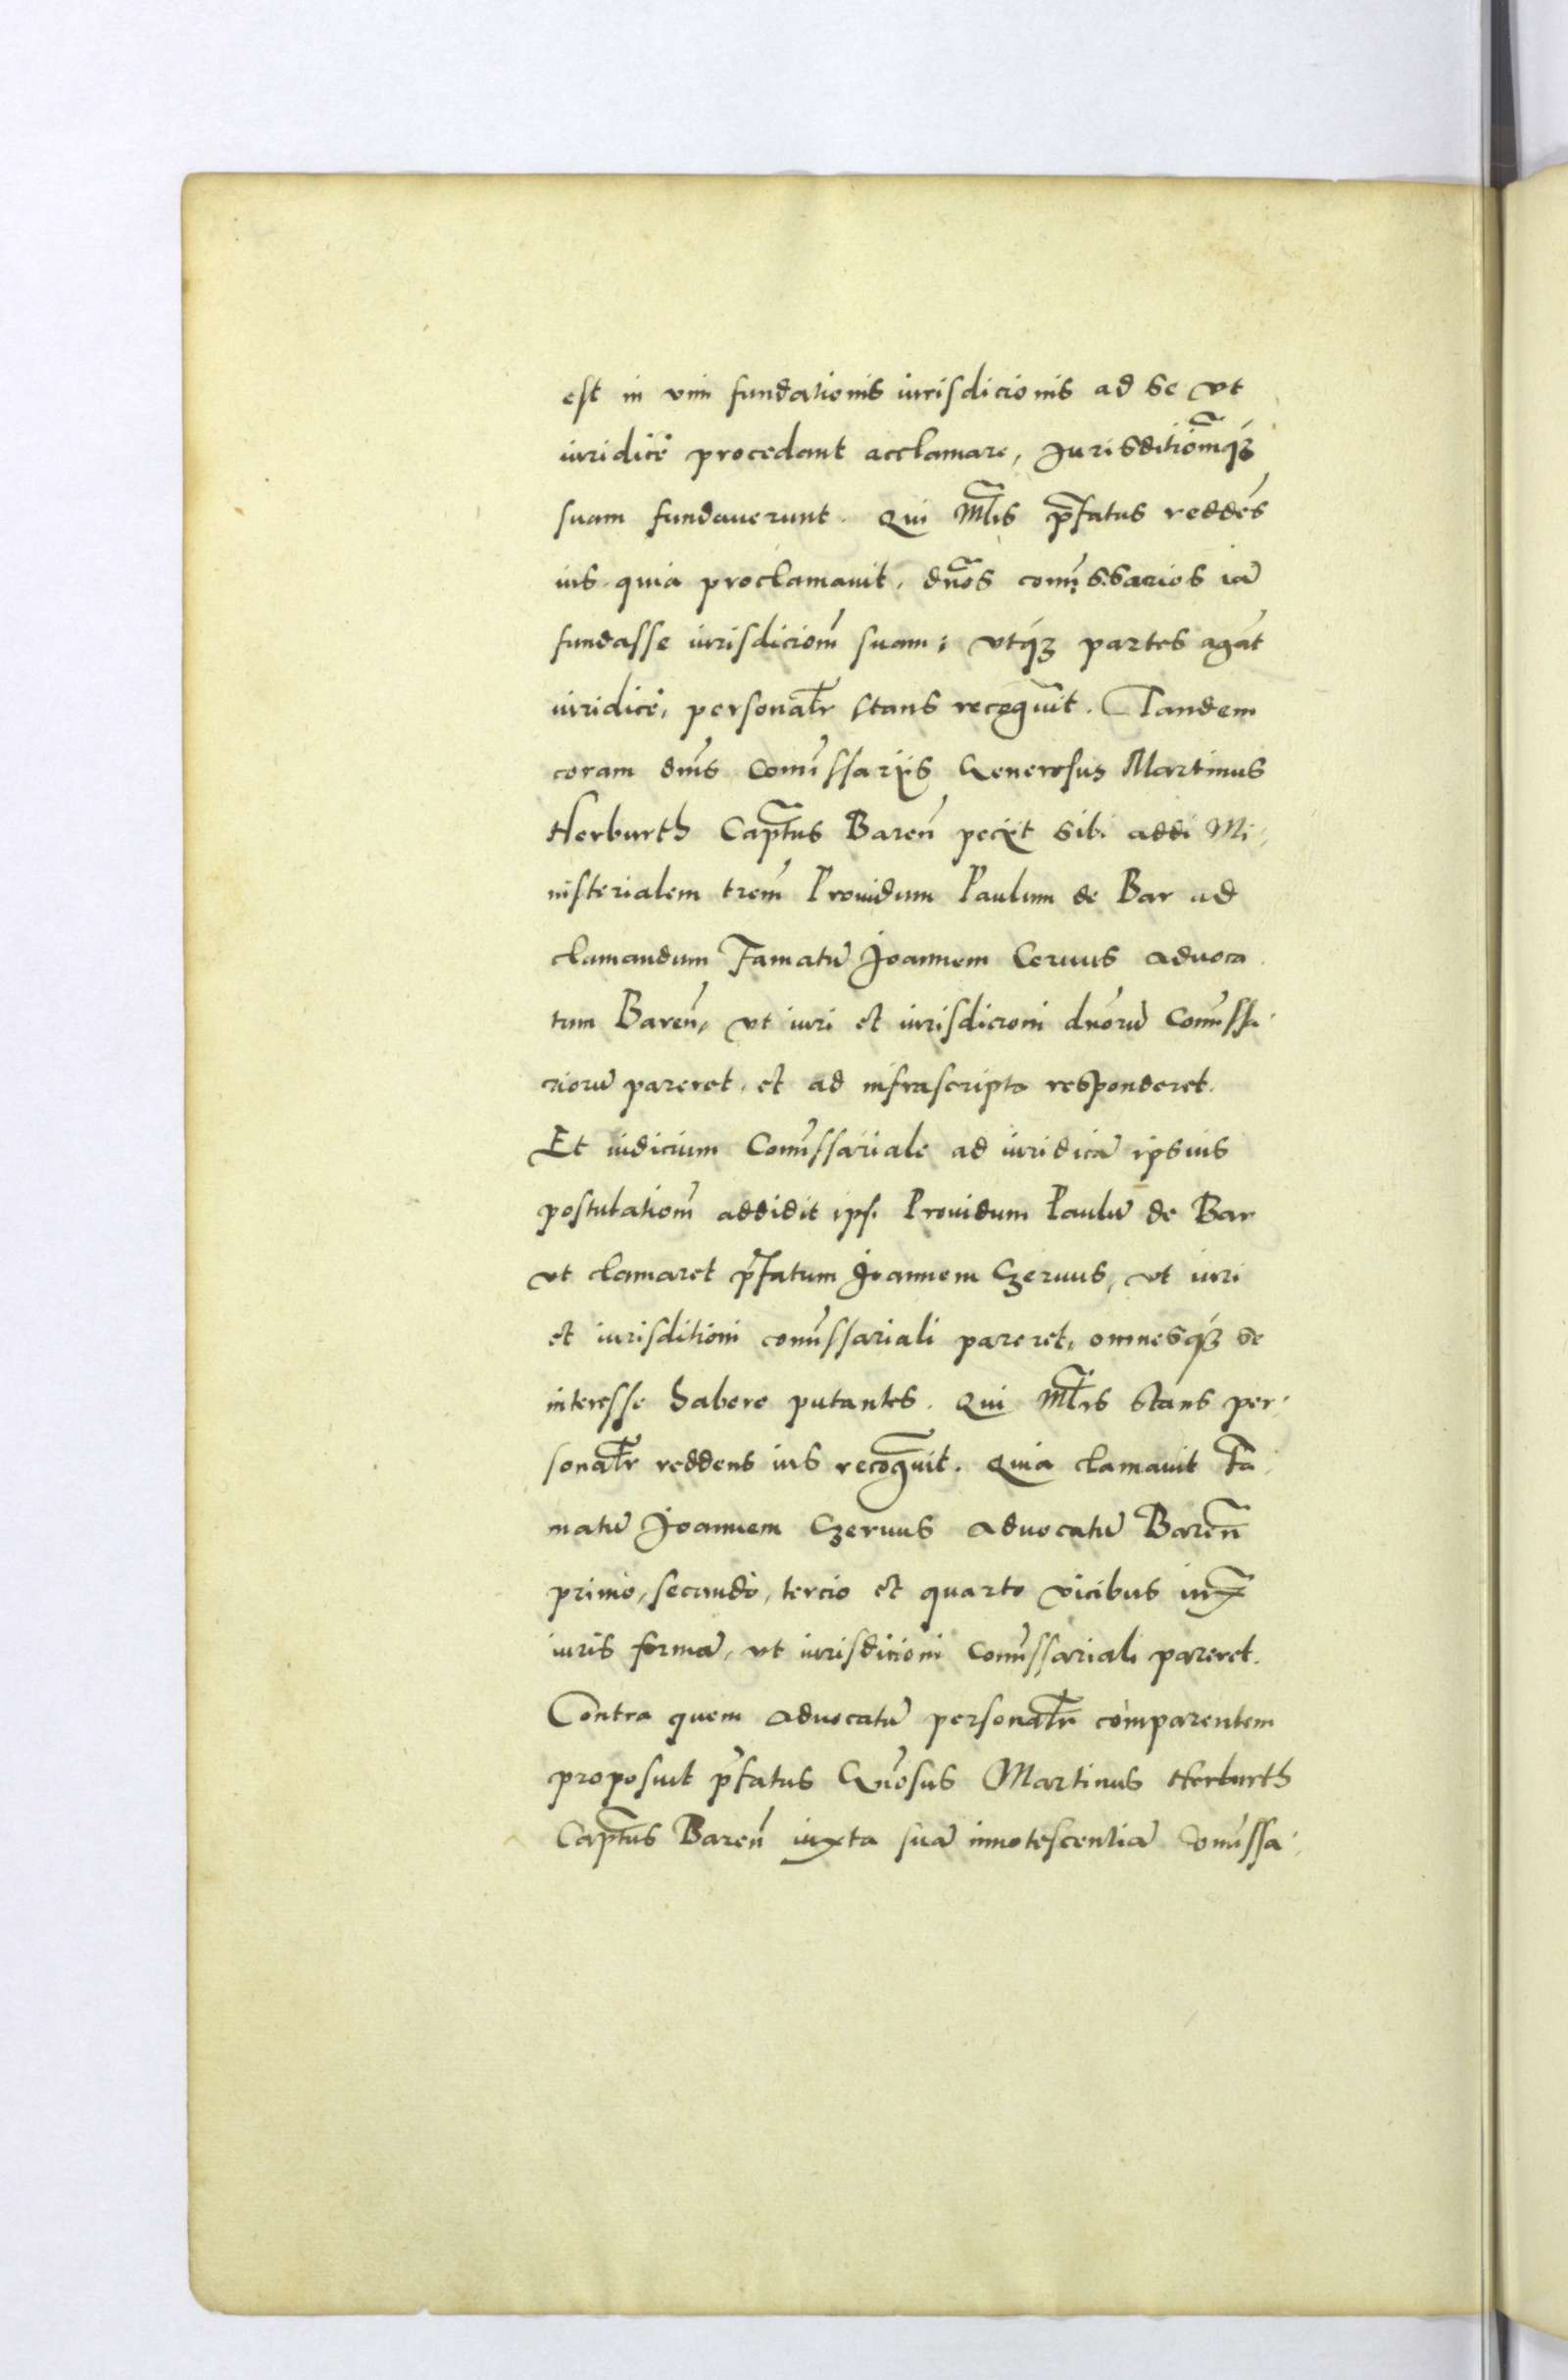 est in vim fundationis iurisdicionis ad se vt
iuridicè procedant acclamare, Jurisditiom̃qȝ
suam fundauerunt. Qui Ml̃is p̃fatus reddẽs
ius quia proclamauit, dños com̃issarios iã
fundasse iurisdiciom̃ suam: vtqȝ partes agãt
iuridicè, personalr̃ stans recog̃uit. Tandem
coram dñis Com̃issarijs Generosus Martinus
Herburth Capt̃us Bareñ pecijt sibi addi Mi-
nisterialem trem̃ Prouidum Paulum de Bar ad
clamandum Famatũ Joannem Ceruus aduoca
tum Bareñ, vt iuri et iurisdicioni dñorũ Com̃issa-
riorũ pareret, et ad infrascripta responderet.
Et iudicium Com̃issariale ad iuridicã ipsius
postulatiom̃ addidit ipsi Prouidum Paulũ de Bar
vt clamaret p̃fatum Joannem Czeruus, vt iuri
et iurisditioni com̃issariali pareret, omnesqȝ se
interesse habere putantes. Qui Ml̃is stans per-
sonalr̃ reddens ius recog̃uit. Quia clamauit Fa
matũ Joannem Czeruus aduocatũ Bareñ
primo, secundò, tercio et quarto vicibus iux̃
iuris formã, vt iurisdicioni Com̃issariali pareret.
Contra quem aduocatũ personalr̃ comparentem
proposuit p̃fatus Gñosus Martinus Herburth
Capt̃us Bareñ iuxta suã innotescentiã Com̃issa-